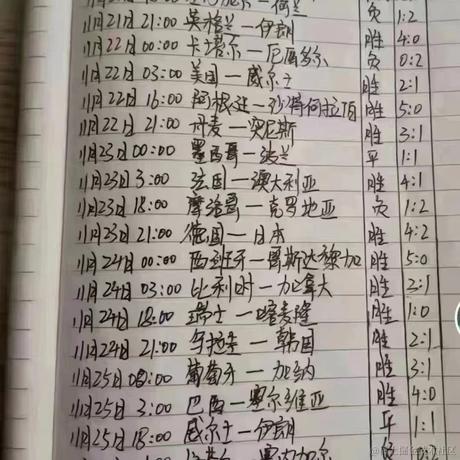 荷兰 负 1:2
11月21日 21:00 英格兰一伊朗 胜 4:0
11月22日 00:00 卡塔尔一厄瓜多尔 负 0:2
11月22日 03:00 美国一威尔士 胜 2:1
11月22日 16:00 阿根廷一沙特阿拉伯 胜 5:0
11月22日 21:00 丹麦一突尼斯 胜 3:1
11月23日 00:00 墨西哥一波兰 平 1:1
11月23日 3:00 法国一澳大利亚 胜 4:1
11月23日 18:00 摩洛哥一克罗地亚 负 1:2
11月23日 21:00 德国一日本 胜 4:2
11月24日 00:00 西班牙一哥斯达黎加 胜 5:0
11月24日 03:00 比利时一加拿大 胜 2:1
11月24日 18:00 瑞士一喀麦隆 胜 1:0
11月24日 21:00 乌拉圭一韩国 胜 2:1
11月25日 00:00 葡萄牙一加纳 胜 3:1
11月25日 3:00 巴西一塞尔维亚 胜 4:0
11月25日 18:00 威尔士一伊朗 平 1:1
塞内加尔